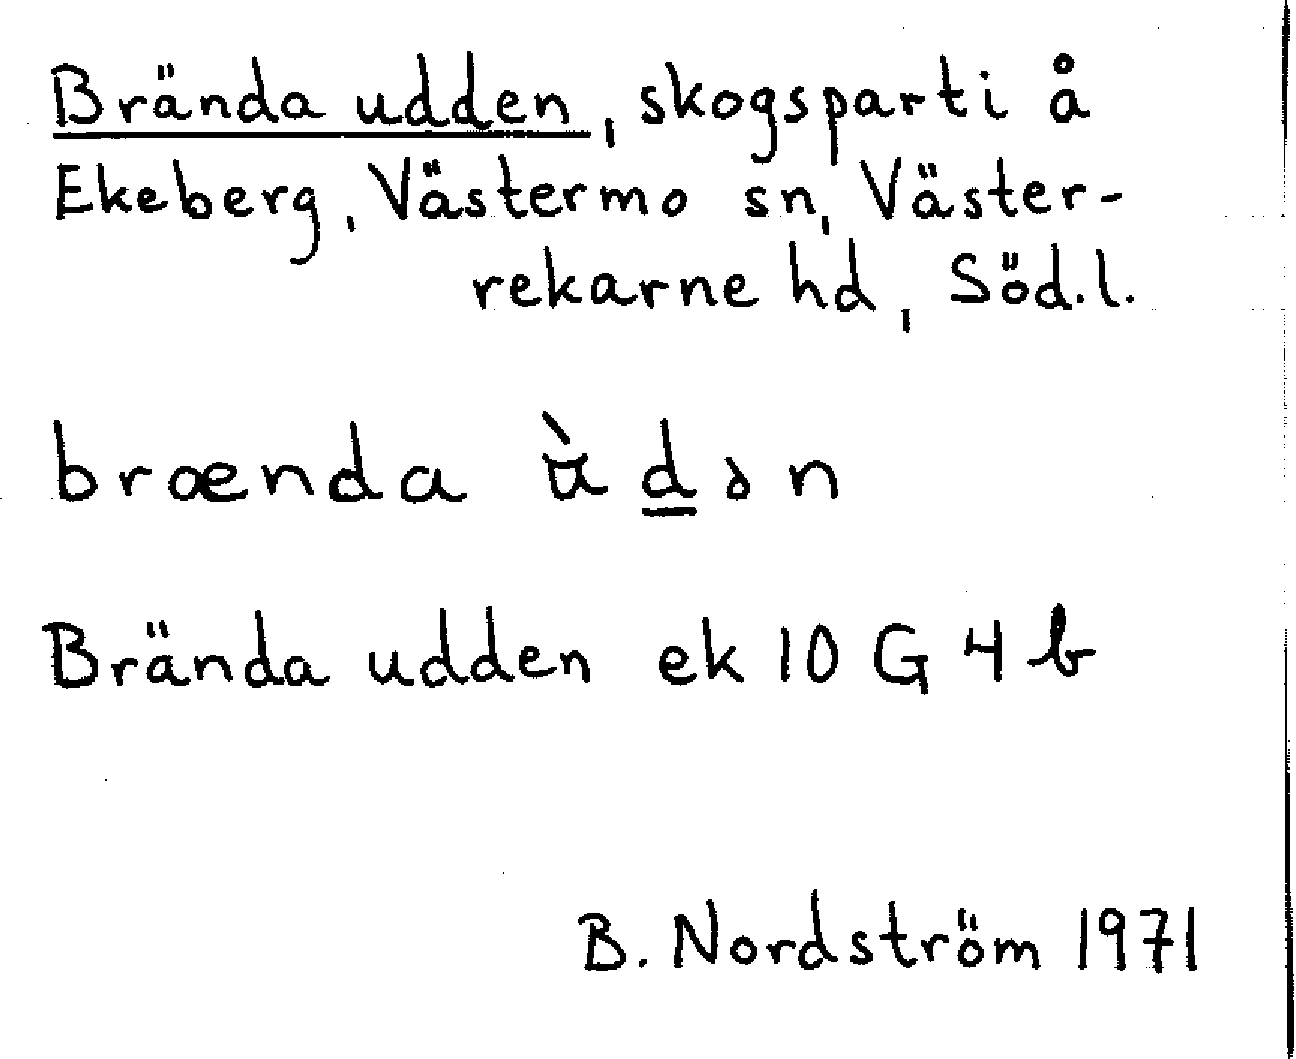 Brända udden, skogsparti å
Ekeberg, Västermo sn, Väster-
rekarne hd, Söd.l.
brænda ὰ d̲ən
Brända udden ek 10 G 4 b
B. Nordström 1971